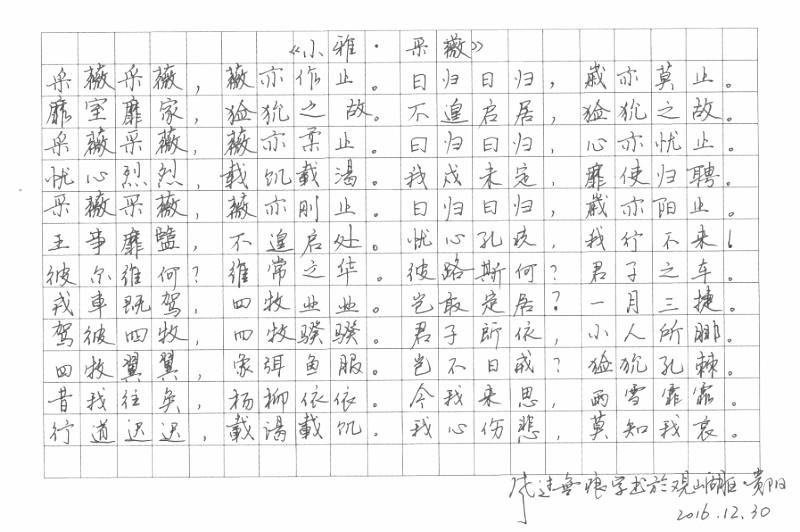 《小雅·采薇》
采薇采薇，薇亦作止。曰归曰归，歲亦莫止。
靡室靡家，猃狁之故。不遑启居，猃狁之故。
采薇采薇，薇亦柔止。曰归曰归，心亦忧止。
忧心烈烈，載饥載渴。我戍未定，靡使归聘。
采薇采薇，薇亦刚止。曰归曰归，歲亦阳止。
王事靡盬，不遑启处。忧心孔疚，我行不来！
彼尔维何？维常之华。彼路斯何？君子之车。
戎車既驾，四牧业业。岂敢定居？一月三捷。
驾彼四牧，四牧骙骙。君子所依，小人所腓。
四牧翼翼，象弭鱼服。岂不日戒？猃狁孔棘。
昔我往矣，杨柳依依。今我来思，雨雪霏霏。
行道迟迟，載渴載饥。我心伤悲，莫知我哀。
学书於观山湖区·贵阳
2016.12.30